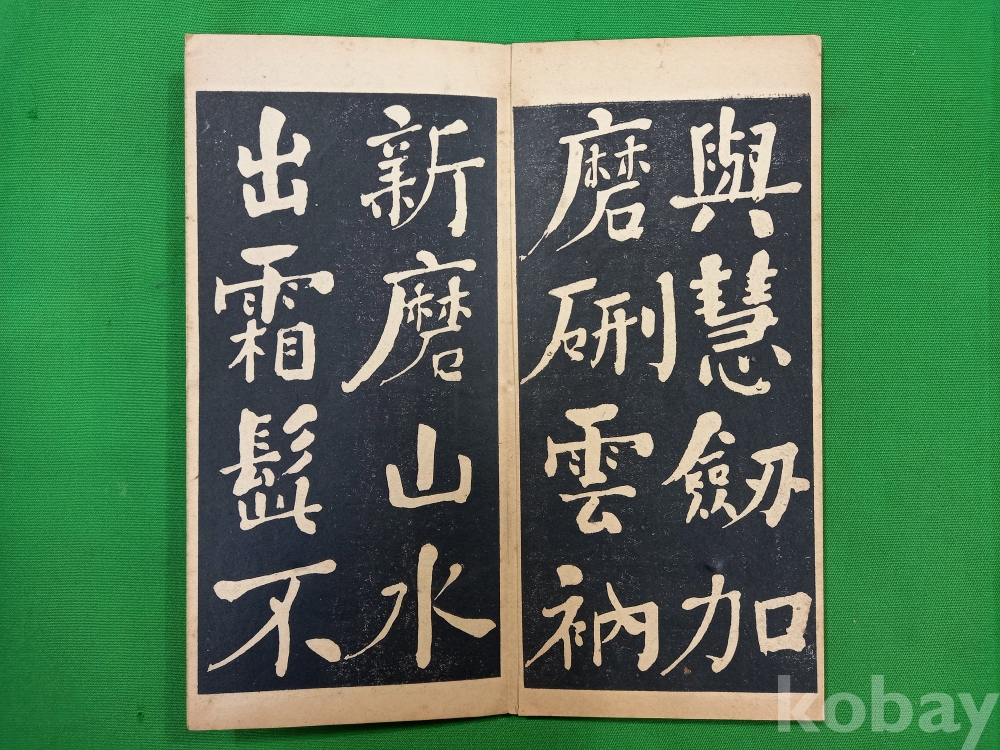 與慧劔加
磨硎雲衲
新磨山水
出霜髭不
kobay